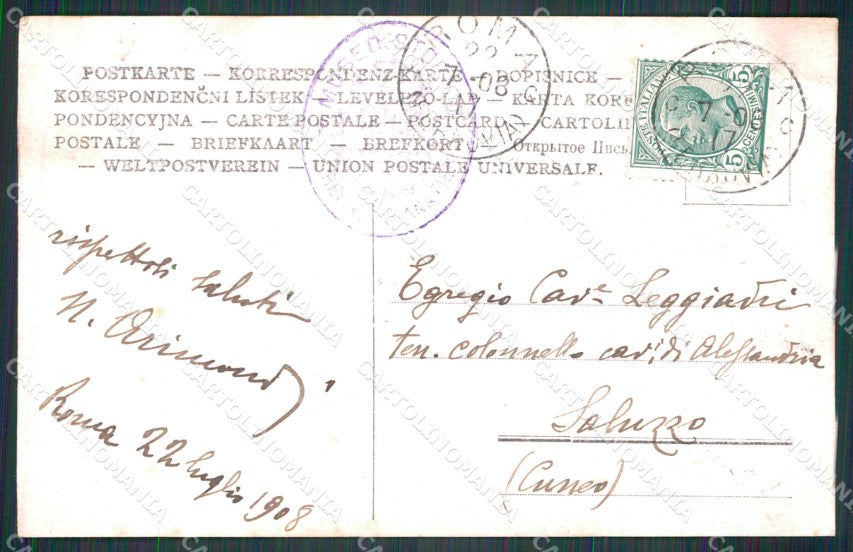 POSTKARTE — KORRESPONDENZ-KARTE — DOPISNICE —
KORESPONDENČNÍ LÍSTEK — LEVELEZŐ-LAP — KARTA KORE
PONDENCYJNA — CARTE POSTALE — POSTCARD — CARTOLIN
POSTALE — BRIEFKAART — BREFKORT — Открытое Пись
— WELTPOSTVEREIN — UNION POSTALE UNIVERSALE.
ROMA
22
7-08
17
MUSEO
5
CENT
5
rispettosi saluti
N. Arimondi
Roma 22 luglio 1908
Egregio Cav.e Leggiadri
ten. colonnello cav. di Alessandria
Saluzzo
(Cuneo)
CARTOLINOMANIA